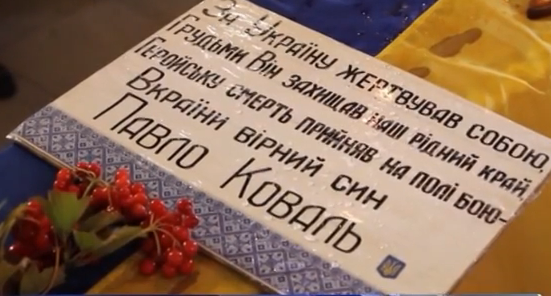 За Україну жертвував собою,
Грудьми Він захищав наш рідний край,
Геройську смерть прийняв на полі бою-
Вкраїни вірний син
Павло Коваль